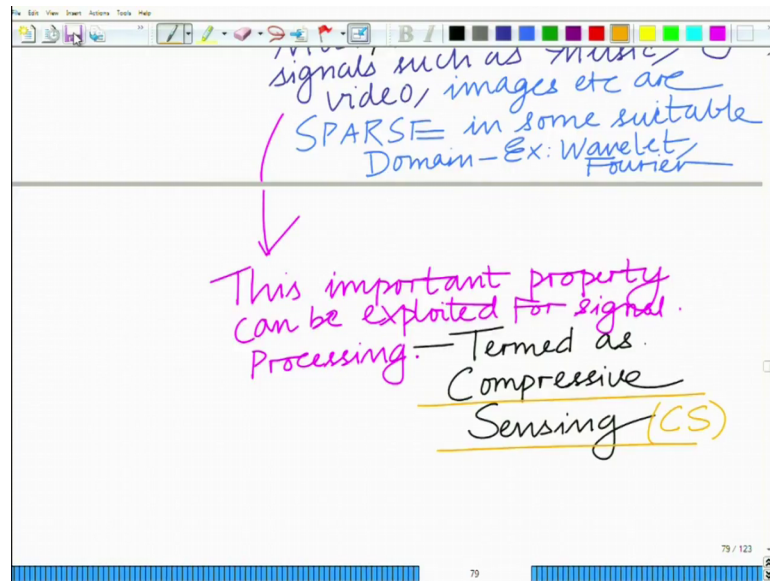 File Edit View Insert Actions Tools Help
B I
signals such as Music,
video, images etc are
SPARSE in some suitable
Domain - Ex: Wavelet,
Fourier
This important property
can be exploited For signal.
Processing. - Termed as.
Compressive
Sensing (CS)
79 / 123
79